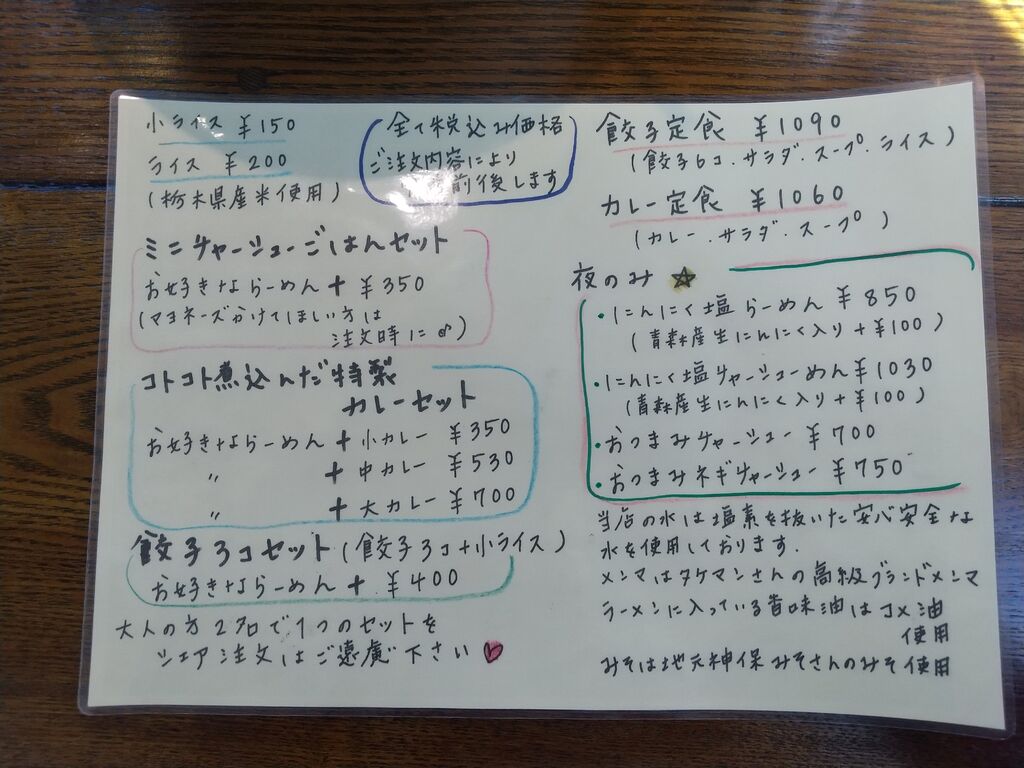 小ライス ¥150
ライス ¥200
(栃木県産米使用)
全て税込み価格
ご注文内容により
前後します
ミニチャーシューごはんセット
お好きならーめん + ¥350
(マヨネーズかけてほしい方は
注文時に♪)
コトコト煮込んだ特製
カレーセット
お好きならーめん + 小カレー ¥350
〃 + 中カレー ¥530
〃 + 大カレー ¥700
餃子3コセット(餃子3コ+小ライス)
お好きならーめん + ¥400
大人の方2名で1つのセットを
シェア注文はご遠慮下さい♥
餃子定食 ¥1090
(餃子6コ.サラダ.スープ.ライス)
カレー定食 ¥1060
(カレー.サラダ.スープ)
夜のみ ☆
・にんにく塩らーめん ¥850
(青森産生にんにく入り+¥100)
・にんにく塩チャーシューめん ¥1030
(青森産生にんにく入り+¥100)
・おつまみチャーシュー ¥700
・おつまみネギチャーシュー ¥750
当店の水は塩素を抜いた安心安全な
水を使用しております.
メンマはタケマンさんの高級ブランドメンマ
ラーメンに入っている香味油はコメ油
使用
みそは地元神保みそさんのみそ使用